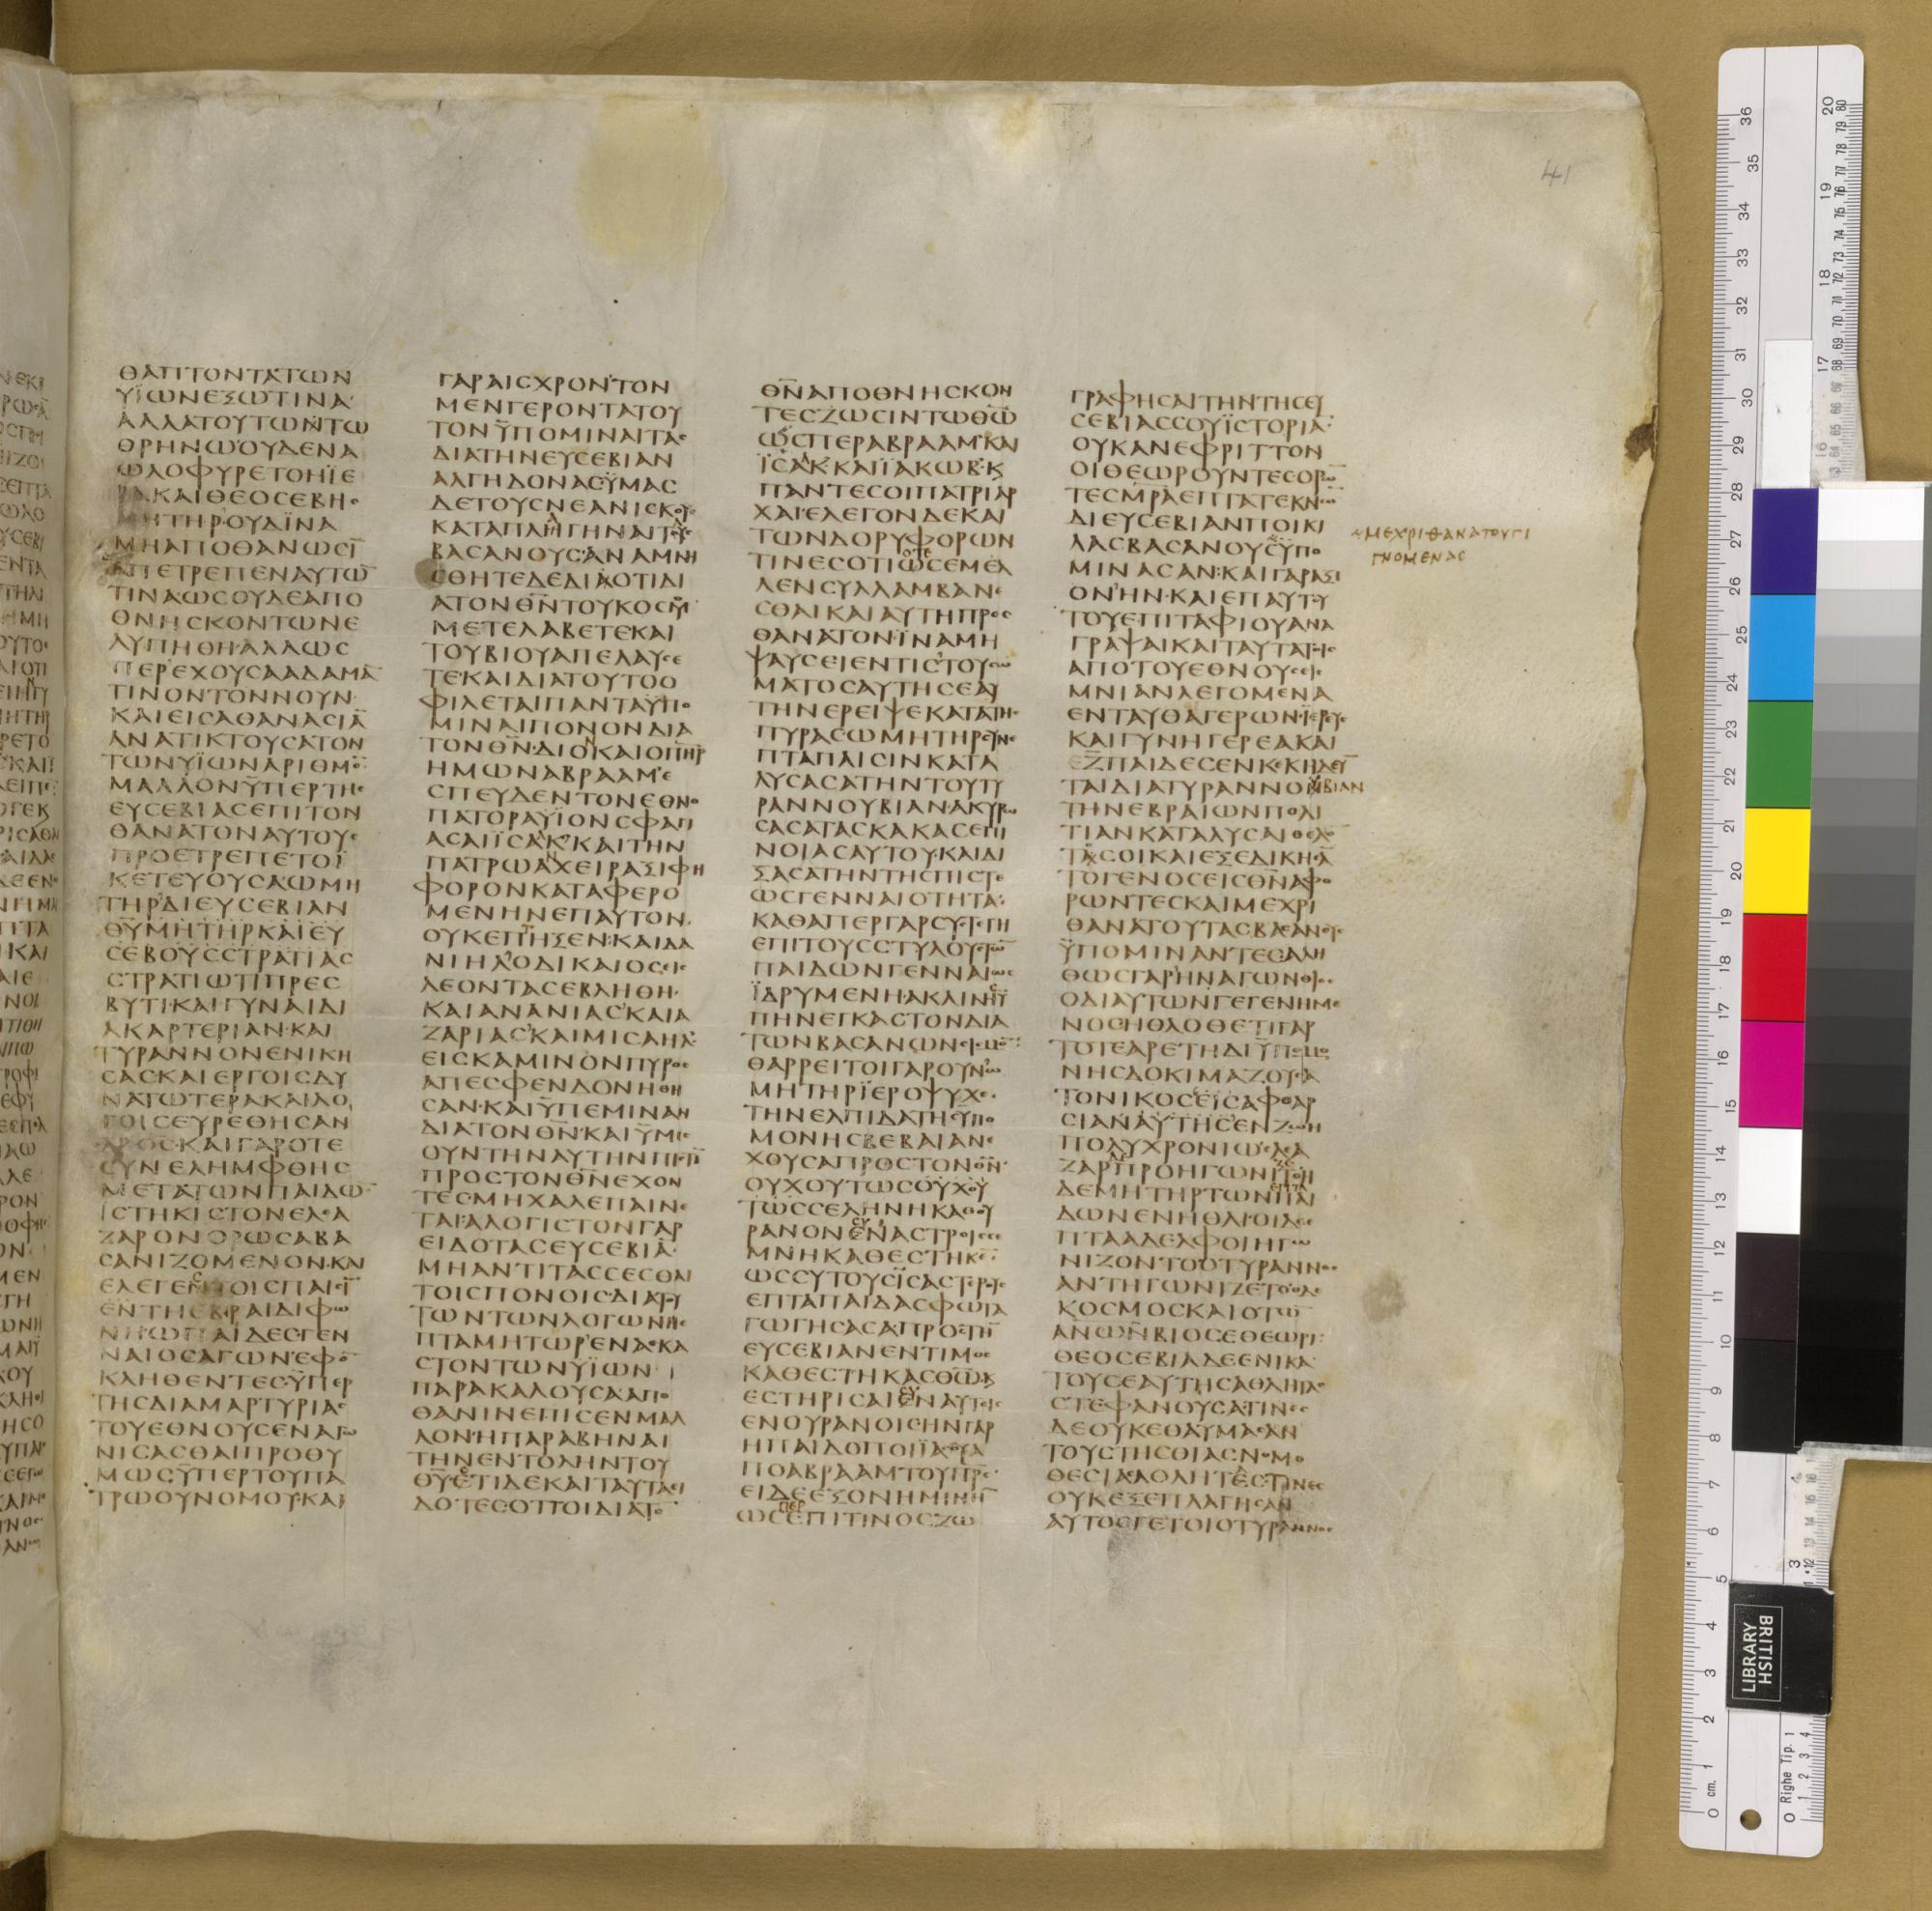 41
ΘΑΠΤΟΝΤΑΤΩΝ
ΥΪΩΝΕΞΩΤΙΝΑ
ΑΛΛΑΤΟΥΤΩΝΤΩ
ΘΡΗΝΩΟΥΔΕΝΑ
ΩΛΟΦΥΡΕΤΟΗΪΕ
ΡΑΚΑΙΘΕΟΣΕΒΗϹ
ΜΗΤΗΡΟΥΔΪΝΑ
ΜΗΑΠΟΘΑΝΩϹΙ̅
ΑΠΕΤΡΕΠΕΝΑΥΤΩ̅
ΤΙΝΑΩϹΟΥΔΕΑΠΟ
ΘΝΗϹΚΟΝΤΩΝΕ
ΛΥΠΗΘΗΑΛΛΩϹ
ΠΕΡΕΧΟΥϹΑΑΔΑΜΑ̅
ΤΙΝΟΝΤΟΝΝΟΥΝ
ΚΑΙΕΙϹΑΘΑΝΑϹΙΑ̅
ΑΝΑΤΙΚΤΟΥϹΑΤΟΝ
ΤΩΝΥΪΩΝΑΡΙΘΜΟ̅
ΜΑΛΛΟΝΫΠΕΡΤΗϹ
ΕΥϹΕΒΙΑϹΕΠΙΤΟΝ
ΘΑΝΑΤΟΝΑΥΤΟΥϹ
ΠΡΟΕΤΡΕΠΕΤΟΪ
ΚΕΤΕΥΟΥϹΑΩΜΗ
ΤΗΡΔΙΕΥϹΕΒΙΑΝ
ΘΥ̅ΜΗΤΗΡΚΑΙΕΥ
ϹΕΒΟΥϹϹΤΡΑΤΙΑϹ
ϹΤΡΑΤΙΩΤΙΠΡΕϹ
ΒΥΤΙΚΑΙΓΥΝΑΙΔΙ
ΑΚΑΡΤΕΡΙΑΝΚΑΙ
ΤΥΡΑΝΝΟΝΕΝΙΚΗ
ϹΑϹΚΑΙΕΡΓΟΙϹΔΥ
ΝΑΤΩΤΕΡΑΚΑΙΛΟ
ΓΟΙϹΕΥΡΕΘΗϹΑΝ
ΔΡΟϹΚΑΙΓΑΡΟΤΕ
ϹΥΝΕΛΗΜΦΘΗϹ
ΜΕΤΑΤΩΝΠΑΙΔΩ̅
ΙϹΤΗΚΙϹΤΟΝΕΛΕΑ
ΖΑΡΟΝΟΡΩϹΑΒΑ
ϹΑΝΙΖΟΜΕΝΟΝΚΑΙ
ΕΛΕΓΕϹΤΟΙϹΠΑΙϹΙ̅
ΕΝΤΗΕΒΡΑΙΔΙΦΩ
ΝΗΩΠΑΙΔΕϹΓΕΝ
ΝΑΙΟϹΑΓΩΝΕΦΟ̅
ΚΛΗΘΕΝΤΕϹΫΠΕΡ
ΤΗϹΔΙΑΜΑΡΤΥΡΙΑϹ
ΤΟΥΕΘΝΟΥϹΕΝΑΓΩ
ΝΙϹΑϹΘΑΙΠΡΟΘΥ
ΜΩϹΫΠΕΡΤΟΥΠΑ
ΤΡΩΟΥΝΟΜΟΥΚΑΙ
ΓΑΡΑΙϹΧΡΟΝΤΟΝ
ΜΕΝΓΕΡΟΝΤΑΤΟΥ
ΤΟΝΫΠΟΜΙΝΑΙΤΑϹ
ΔΙΑΤΗΝΕΥϹΕΒΙΑΝ
ΑΛΓΗΔΟΝΑϹΫΜΑϹ
ΔΕΤΟΥϹΝΕΑΝΙϹΚΟΥϹ
ΚΑΤΑΠΛΗΓΗΝΑΙΤΟΥϹ
ΒΑϹΑΝΟΥϹΑΝΑΜΝΗ
ϹΘΗΤΕΔΕΔΙΚΟΤΙΔΙ
ΑΤΟΝΘΝ̅ΤΟΥΚΟϹΜΟΥ
ΜΕΤΕΛΑΒΕΤΕΚΑΙ
ΤΟΥΒΙΟΥΑΠΕΛΑΥϹΕ
ΤΕΚΑΙΔΙΑΤΟΥΤΟΟ
ΦΙΛΕΤΑΙΠΑΝΤΑΫΠΟ
ΜΙΝΑΙΠΟΝΟΝΔΙΑ
ΤΟΝΘΝ̅ΔΙΟΝΚΑΙΟΠΗΡ
ΗΜΩΝΑΒΡΑΑΜΕ
ϹΠΕΥΔΕΝΤΟΝΕΘΝΟ
ΠΑΤΟΡΑΥΪΟΝϹΦΑΓΙ
ΑϹΑΙΪϹΑΑΚΚΑΙΤΗΝ
ΠΑΤΡΩΑΝΧΕΙΡΑΞΙΦΗ
ΦΟΡΟΝΚΑΤΑΦΕΡΟ
ΜΕΝΗΝΕΠΑΥΤΟΝ
ΟΥΚΕΠΤΗΞΕΝΚΑΙΔΑ
ΝΙΗΛΟΔΙΚΑΙΟϹΕΙϹ
ΛΕΟΝΤΑϹΕΒΛΗΘΗ
ΚΑΙΑΝΑΝΙΑϹΚΑΙΑ
ΖΑΡΙΑϹΚΑΙΜΙϹΑΗΛ
ΕΙϹΚΑΜΙΝΟΝΠΥΡΟϹ
ΑΠΕϹΦΕΝΔΟΝΗΘΗ
ϹΑΝΚΑΙΫΠΕΜΙΝΑΝ
ΔΙΑΤΟΝΘΝ̅ΚΑΙΫΜΙϹ
ΟΥΝΤΗΝΑΥΤΗΝΠΙϹΤΙ̅
ΠΡΟϹΤΟΝΘΝ̅ΕΧΟΝ
ΤΕϹΜΗΧΑΛΕΠΑΙΝΕ
ΤΑΙΑΛΟΓΙϹΤΟΝΓΑΡ
ΕΙΔΟΤΑϹΕΥϹΕΒΙΑ̅
ΜΗΑΝΤΙΤΑϹϹΕϹΘΑΙ
ΤΟΙϹΠΟΝΟΙϹΔΙΑ
ΤΩΝΤΩΝΛΟΓΩΝΗΕ
ΠΤΑΜΗΤΩΡΕΝΑΕΚΑ
ϹΤΟΝΤΩΝΥΪΩΝ
ΠΑΡΑΚΑΛΟΥϹΑΑΠΟ
ΘΑΝΙΝΕΠΙϹΕΝΜΑΛ
ΛΟΝΗΠΑΡΑΒΗΝΑΙ
ΤΗΝΕΝΤΟΛΗΝΤΟΥ
ΘΥ̅ΕΤΙΔΕΚΑΙΤΑΥΤΑΕΙ
ΔΟΤΕϹΟΤΙΟΙΔΙΑΤΟ̅
ΘΝ̅ΑΠΟΘΝΗϹΚΟΝ
ΤΕϹΖΩϹΙΝΤΩΘΩ̅
ΩϹΠΕΡΑΒΡΑΑΜΚΑΙ
ΪϹΑΑΚΚΑΙΪΑΚΩΒΚϚ
ΠΑΝΤΕϹΟΙΠΑΤΡΙΑΡ
ΧΑΙΕΛΕΓΟΝΔΕΚΑΙ
ΤΩΝΔΟΡΥΦΟΡΩΝ
ΤΙΝΕϹΟΤΙΩϹΕΜΕΛ
ΛΕΝϹΥΛΛΑΜΒΑΝΕ
ϹΘΑΙΚΑΙΑΥΤΗΠΡΟϹ
ΘΑΝΑΤΟΝΪΝΑΜΗ
ΨΑΥϹΕΙΕΝΤΙϹΤΟΥϹΩ
ΜΑΤΟϹΑΥΤΗϹΕΑΥ
ΤΗΝΕΡΕΙΨΕΚΑΤΑΤΗϹ
ΠΥΡΑϹΩΜΗΤΗΡϹΥΝΕ
ΠΤΑΠΑΙϹΙΝΚΑΤΑ
ΛΥϹΑϹΑΤΗΝΤΟΥΤΥ
ΡΑΝΝΟΥΒΙΑΝΑΚΥΡΩ
ϹΑϹΑΤΑϹΚΑΚΑϹΕΠΙ
ΝΟΙΑϹΑΥΤΟΥΚΑΙΔΙ
ΞΑϹΑΤΗΝΤΗϹΠΙϹΤΕ
ΩϹΓΕΝΝΑΙΟΤΗΤΑ
ΚΑΘΑΠΕΡΓΑΡϹΥϹΤΕΓΗ
ΕΠΙΤΟΥϹϹΤΥΛΟΥϹΤΩ̅
ΠΑΙΔΩΝΓΕΝΝΑΙΩϹ
ΪΔΡΥΜΕΝΗΑΚΛΙΝΗϹΫ
ΠΗΝΕΓΚΑϹΤΟΝΔΙΑ
ΤΩΝΒΑϹΑΝΩΝϹΙϹΜΟ̅
ΘΑΡΡΕΙΤΟΙΓΑΡΟΥΝΩ
ΜΗΤΗΡΪΕΡΟΨΥΧΕ
ΤΗΝΕΛΠΙΔΑΤΗϹΫΠΟ
ΜΟΝΗϹΒΕΒΑΙΑΝΕ
ΧΟΥϹΑΠΡΟϹΤΟΝΘΝ̅
ΟΥΧΟΥΤΩϹΟΥΧΟΥ
ΤΩϹϹΕΛΗΝΗΚΑΤΟΥ
ΡΑΝΟΝϹΥΝΑϹΤΡΟΙϹϹΕ
ΜΝΗΚΑΘΕϹΤΗΚΕ̅
ΩϹϹΥΤΟΥϹΪϹΑϹΤΕΡΟΥϹ
ΕΠΤΑΠΑΙΔΑϹΦΩΤΑ
ΓΩΓΗϹΑϹΑΠΡΟϹΤΗ̅
ΕΥϹΕΒΙΑΝΕΝΤΙΜΟϹ
ΚΑΘΕϹΤΗΚΑϹΘΩ̅ΚϚ
ΕϹΤΗΡΙϹΑΙϹΥΝΑΥΤΟΙϹ
ΕΝΟΥΡΑΝΟΙϹΗΝΓΑΡ
ΗΠΑΙΔΟΠΟΙΪΑϹΟΥΑ
ΠΟΑΒΡΑΑΜΤΟΥΠΡϹ̅
ΕΙΔΕΕΞΟΝΗΜΙΝΗ̅
ΩϹΠΕΡΕΠΙΤΙΝΟϹΖΩ
ΓΡΑΦΗϹΑΙΤΗΝΤΗϹΕΥ
ϹΕΒΙΑϹϹΟΥΪϹΤΟΡΙΑ̅
ΟΥΚΑΝΕΦΡΙΤΤΟΝ
ΟΙΘΕΩΡΟΥΝΤΕϹΟΡΩ̅
ΤΕϹΜΡΑΕΠΤΑΤΕΚΝΩ̅
ΔΙΕΥϹΕΒΙΑΝΠΟΙΚΙ
ΛΑϹΒΑϹΑΝΟΥϹΫΠΟ
ΜΕΧΡΙΘΑΝΑΤΟΥΓΙ
ΓΝΟΜΕΝΑϹ
ΜΙΝΑϹΑΝΚΑΙΓΑΡΑΞΙ
ΟΝΗΝΚΑΙΕΠΑΥΤΟΥ
ΤΟΥΕΠΙΤΑΦΙΟΥΑΝΑ
ΓΡΑΨΑΙΚΑΙΤΑΥΤΑΤΟΙϹ
ΑΠΟΤΟΥΕΘΝΟΥϹΕΙϹ
ΜΝΙΑΝΛΕΓΟΜΕΝΑ
ΕΝΤΑΥΘΑΓΕΡΩΝΪΕΡΕΥϹ
ΚΑΙΓΥΝΗΓΕΡΕΑΚΑΙ
ΕΖ̅ΠΑΙΔΕϹΕΝΚΕΚΗΔΕΥ
ΤΑΙΔΙΑΤΥΡΑΝΝΟΥΒΙΑΝ
ΤΗΝΕΒΡΑΙΩΝΠΟΛΙ
ΤΙΑΝΚΑΤΑΛΥϹΑΙΘΕΛΟ̅
ΤΟϹΟΙΚΑΙΕΞΕΔΙΚΗϹΑ̅
ΤΟΓΕΝΟϹΕΙϹΘΝ̅ΑΦΟ
ΡΩΝΤΕϹΚΑΙΜΕΧΡΙ
ΘΑΝΑΤΟΥΤΑϹΒΑϹΑΝΟΥϹ
ΫΠΟΜΙΝΑΝΤΕϹΑΛΗ
ΘΩϹΓΑΡΗΝΑΓΩΝΘΙΟϹ
ΟΔΙΑΥΤΩΝΓΕΓΕΝΗΜΕ
ΝΟϹΗΘΛΟΘΕΤΙΓΑΡ
ΤΟΤΕΑΡΕΤΗΔΙΫΠΟΜΟ
ΝΗϹΔΟΚΙΜΑΖΟΥϹΑ
ΤΟΝΙΚΟϹΕΙϹΑΦΘΑΡ
ϹΙΑΝΑΥΤΗϹΕΝΖΩΗ
ΠΟΛΥΧΡΟΝΙΩΕΛΕΑ
ΖΑΡΠΡΟΗΓΩΝΙΖΕΤΟΗ
ΔΕΜΗΤΗΡΤΩΝΕΠΤΑΠΑΙ
ΔΩΝΕΝΗΘΛΙΟΙΔΕΕ
ΠΤΑΑΔΕΛΦΟΙΗΓΩ
ΝΙΖΟΝΤΟΟΤΥΡΑΝΝΟϹ
ΑΝΤΗΓΩΝΙΖΕΤΟΟΔΕ
ΚΟϹΜΟϹΚΑΙΟΤΩ̅
ΑΝΩΝ̅ΒΙΟϹΕΘΕΩΡΙ
ΘΕΟϹΕΒΙΑΔΕΕΝΙΚΑ
ΤΟΥϹΕΑΥΤΗϹΑΘΛΗΤΑϹ
ϹΤΕΦΑΝΟΥϹΑΤΙΝΕϹ
ΔΕΟΥΚΕΘΑΥΜΑϹΑΝ
ΤΟΥϹΤΗϹΘΙΑϹΝΟΜΟ
ΘΕϹΙΑϹΑΘΛΗΤΑϹΤΙΝΕϹ
ΟΥΚΕΞΕΠΛΑΓΗϹΑΝ
ΑΥΤΟϹΓΕΤΟΙΟΤΥΡΑΝΝΟϹ
BRITISH
LIBRARY
cm.
Righe Tip.